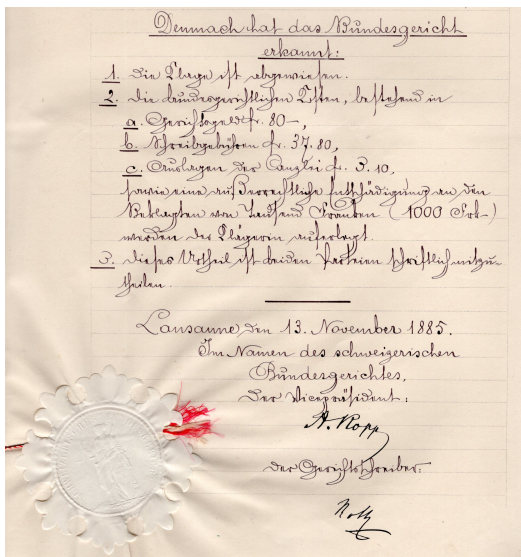 Demnach hat das Bundesgericht
erkannt:
1. Die Klage ist abgewiesen.
2. Die bundesgerichtlichen Kosten, bestehend in
a. Gerichtsgeld fr. 80–,
b. Schreibgebühren fr. 37.80,
c. Auslagen der Canzlei fr. 3.10,
sowie eine außerrechtliche Entschädigung an den
Beklagten von Tausend Franken (1000 Frk–)
werden der Klägerin auferlegt.
3. Dieses Urtheil ist beiden Parteien schriftlich mitzu-
theilen.
Lausanne den 13. November 1885.
Im Namen des schweizerischen
Bundesgerichtes,
Der Vicepräsident:
H. Kopp
Der Gerichtschreiber: